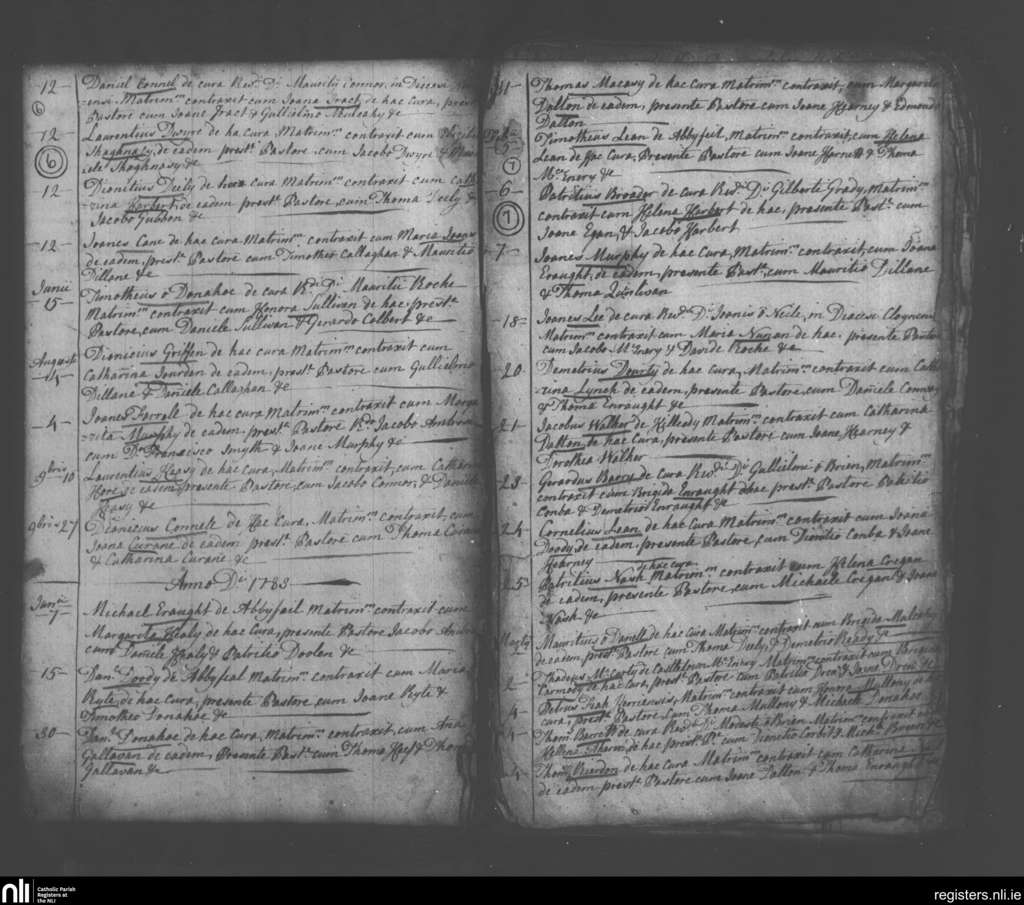 12 Daniel Connel de cura Revdi Di Mauritii Connor, in Diecesi
6 Matrimm contraxit cum Joana Tract de hac cura, prest
Pastore cum Joane Tract & Gullielmo Mulcahy &c
12 Laurentius Dwyre de ha cura Matrimm contraxit cum
6 Shaghnasy de eadem prest Pastore cum Jacobo Dwyre &
Shaghnasy &c
12 Dionitius Deily de hac cura Matrimm contraxit cum Cath
rina Harbert de eadem prest Pastore, cum Thoma Deely &
Jacobo Gubbon &c
12 Joanes Cane de hac cura Matrimm contraxit cum Maria
de eadem, prest Pastore cum Timotheo Callaghan & Mauritio
Dillane &c
Junii 15 Timotheus o Donahoe de cura Rdi Di Mauritii Roche
Matrimm contraxit cum Honora Sullivan de hac prest
Pastore, cum Daniele Sullivan & Gerardo Colbert &c
Augusti Dionicius Griffen de hac cura Matrimm contraxit cum
4 Catharina Jourden de eadem, prest Pastore cum Gullielmo
Dillane & Daniele Callaghan &c
4 Joanes Ferrole de hac cura Matrimm contraxit cum Marga
rita Murphy de eadem prest Pastore Rdo Jacobo Ambrose
cum Do Francisco Smyth & Joane Murphy &c
9bris 10 Laurentius Heasy de hac cura, Matrimm contraxit, cum Catharina
Hore de eadem, presente Pastore, cum Jacobo Connor, & Daniele
Heasy &c
9bris 27 Dionicius Connele de Hac Cura, Matrimm contraxit, cum
Joana Curane de eadem prest Pastore cum Thoma
& Catharina Curane, &c
Anno Di 1783
7 Michael Eraught de Abbyfail Matrimm contraxit cum
Margareta Healy de hac Cura, presente Pastore Jacobo
cum Daniele Healy & Patritio Doolen &c
15 Danl Doody de Abbyfeal Matrimm contraxit cum Maria
Ryle, de hac Cura, presente Pastore, cum Joane Ryle &
Timotheo Donahoe &c
30 Danl Donahoe de hac cura, Matrimm contraxit, cum Ana
Gallavan de eadem, Presente Past cum Thoma & Thoma
Gallavan &c
Thomas Macasy de hac Cura Matrimm contraxit, cum Margareta
Dalton de eadem, presente Pastore cum Joane Hearney & Edmundo
Dalton
5 Timotheus Lean de Abbyfeil, Matrimm contraxit, cum Helena
7 Lean de Hac Cura, Presente Pastore cum Joane Harnett & Thoma
McEnery &c
6 Patritius Broader de cura Revdi Di Gilberti Grady, Matrimm
7 contraxit cum Helena Harbert de hac, presente Past cum
Joana Egan, & Jacobo Harbert
7 Joanes Murphy de hac Cura, Matrimm contraxit, cum Joana
Eraught, de eadem, presente Past, cum Mauritio Dillane
& Thoma Quinlivan
18 Joanes Lee de cura Revdi Di Joanis o Neile, in Diecesi Cloynensi
Matrimm contraxit cum Maria Nunan de hac, presente Pastore
cum Jacobo McEnery & Davide Roche &c
20 Demetrius Dourty de hac cura, Matrimm contraxit cum Cathe
rina Lynch de eadem, presente Pastore, cum Daniele Connor
& Thoma Enraught &c
21 Jacobus Walker de Killeedy Matrimm contraxit cum Catharina
Dalton, de hac Cura, presente Pastore cum Joane Hearney &
Dorothea Walker
23 Gerardus Barry de cura Revdi Di Gullielmi o Brien, Matrimm
contraxit cum Brigida Enraught de hac prest Pastore Patritio
Conba & Demetrio Enraught &c
24 Cornelius Lean de hac Cura Matrimm contraxit cum Joana
Doody, de eadem, presente Pastore, cum Dionitio Conba & Joane
Hearney
de hac cura
25 Patritius Nash Matrimm contraxit cum Helena Cregan
de eadem, presente Pastore, cum Michaele Cregan & Joane
Nash &c
Mauritius o Daniell de hac cura Matrimm contraxit cum Brigida
de eadem, prest Pastore cum Thoma Deely, & Demetrio Ready &c
2 Thadeus McCarty de Matrimm contraxit cum Brigida
Carmody de hac Cura, prest Pastore cum Patritio Drew & Joane Drew &c
4 Petrus Matrimm contraxit cum Honora Mullony de hac
cura, prest Pastore cum Thoma Mullony & Michaele Donahoe
4 Thoms Barrett de cura Revdi Di Modesti o Brien Matrimm contraxit cum
Helena de hac prest Pe cum Dionitio Corbitt & Michle Brown &c
4 Thoms Reardon de hac cura Matrimm contraxit cum Catharina
de eadem prest Pastore cum Joane Dalton & Thoma Enraught
nli Catholic Parish
Registers at
the NLI
registers.nli.ie